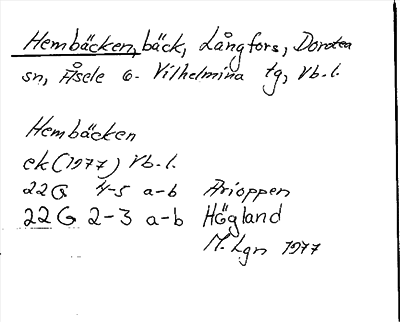 Hembäcken, bäck, Långfors, Dorotea
sn, Åsele o. Vilhelmina tg, Vb. l.
Hembäcken
ek (1977) Vb. l.
22G 4-5 a-b Arioppen
22G 2-3 a-b Högland
M. Lgn 1977